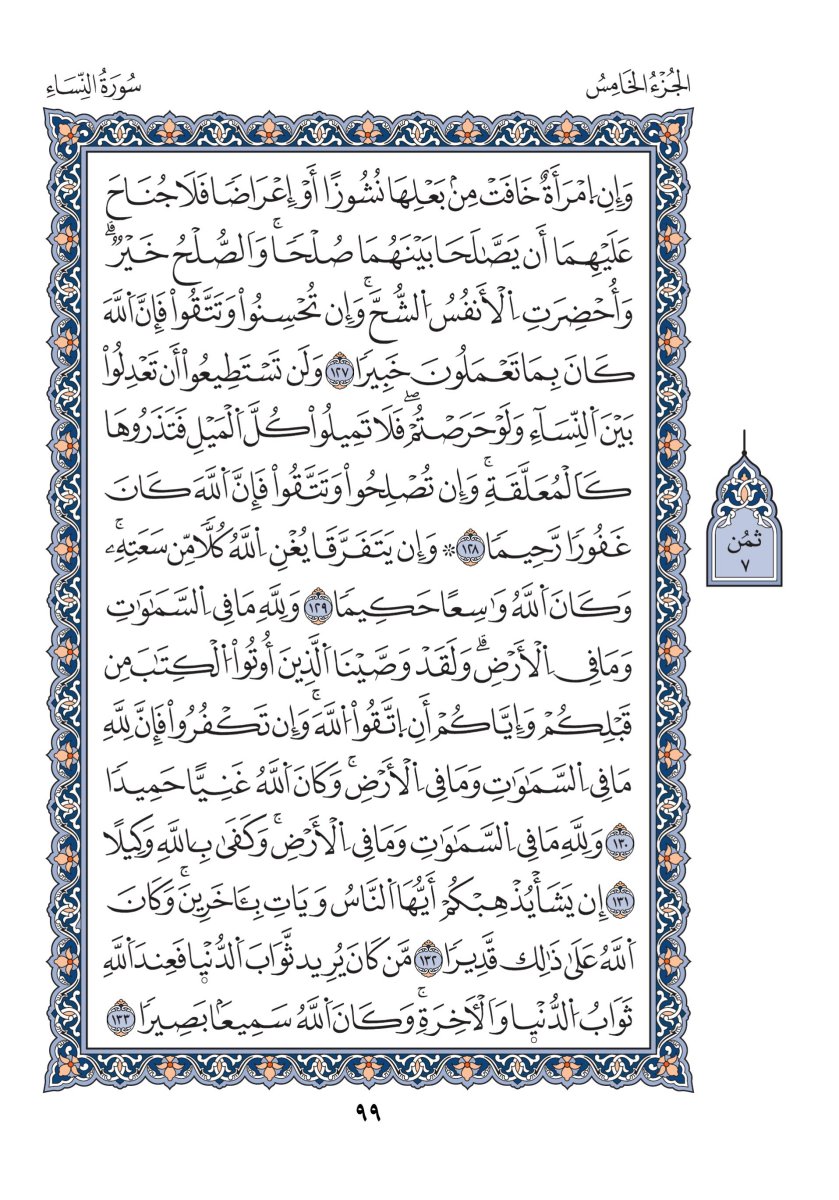 الجُزْءُ الخَامِسُ
سُورَةُ النِّسَاءِ
وَإِنِ اِمْرَأَةٌ خَافَتْ مِنۢ بَعْلِهَا نُشُوزًا أَوْ إِعْرَاضًا فَلَا جُنَاحَ
عَلَيْهِمَا أَن يَصَّٰلَحَا بَيْنَهُمَا صُلْحًاۚ وَاَلصُّلْحُ خَيْرٌۗ
وَأُحْضِرَتِ اِلْأَنفُسُ اُلشُّحَّۚ وَإِن تُحْسِنُواْ وَتَتَّقُواْ فَإِنَّ اَللَّهَ
كَانَ بِمَا تَعْمَلُونَ خَبِيرًا ١٢٧ وَلَن تَسْتَطِيعُواْ أَن تَعْدِلُواْ
بَيْنَ اَلنِّسَآءِ وَلَوْ حَرَصْتُمْۖ فَلَا تَمِيلُواْ كُلَّ اَلْمَيْلِ فَتَذَرُوهَا
كَالْمُعَلَّقَةِۚ وَإِن تُصْلِحُواْ وَتَتَّقُواْ فَإِنَّ اَللَّهَ كَانَ
غَفُورًا رَّحِيمًا ١٢٨ ۞ وَإِن يَتَفَرَّقَا يُغْنِ اِللَّهُ كُلًّا مِّن سَعَتِهِۦۚ
وَكَانَ اَللَّهُ وَٰسِعًا حَكِيمًا ١٢٩ وَلِلَّهِ مَا فِي اِلسَّمَٰوَٰتِ
وَمَا فِي اِلْأَرْضِۗ وَلَقَدْ وَصَّيْنَا اَلَّذِينَ أُوتُواْ اُلْكِتَٰبَ مِن
قَبْلِكُمْ وَإِيَّاكُمْ أَنِ اِتَّقُواْ اُللَّهَۚ وَإِن تَكْفُرُواْ فَإِنَّ لِلَّهِ
مَا فِي اِلسَّمَٰوَٰتِ وَمَا فِي اِلْأَرْضِۚ وَكَانَ اَللَّهُ غَنِيًّا حَمِيدًا
١٣٠ وَلِلَّهِ مَا فِي اِلسَّمَٰوَٰتِ وَمَا فِي اِلْأَرْضِۚ وَكَفَىٰ بِاللَّهِ وَكِيلًا
١٣١ إِن يَشَأْ يُذْهِبْكُمْ أَيُّهَا اَلنَّاسُ وَيَاتِ بِـَٔاخَرِينَۚ وَكَانَ
اَللَّهُ عَلَىٰ ذَٰلِك قَّدِيرًا ١٣٢ مَّن كَانَ يُرِيد ثَّوَابَ اَلدُّنْيٜا فَعِندَ اَللَّهِ
ثَوَابُ اُلدُّنْيٜا وَاَلْأٓخِرَةِۚ وَكَانَ اَللَّهُ سَمِيعَۢا بَصِيرًا ١٣٣
ثمُن
٧
٩٩